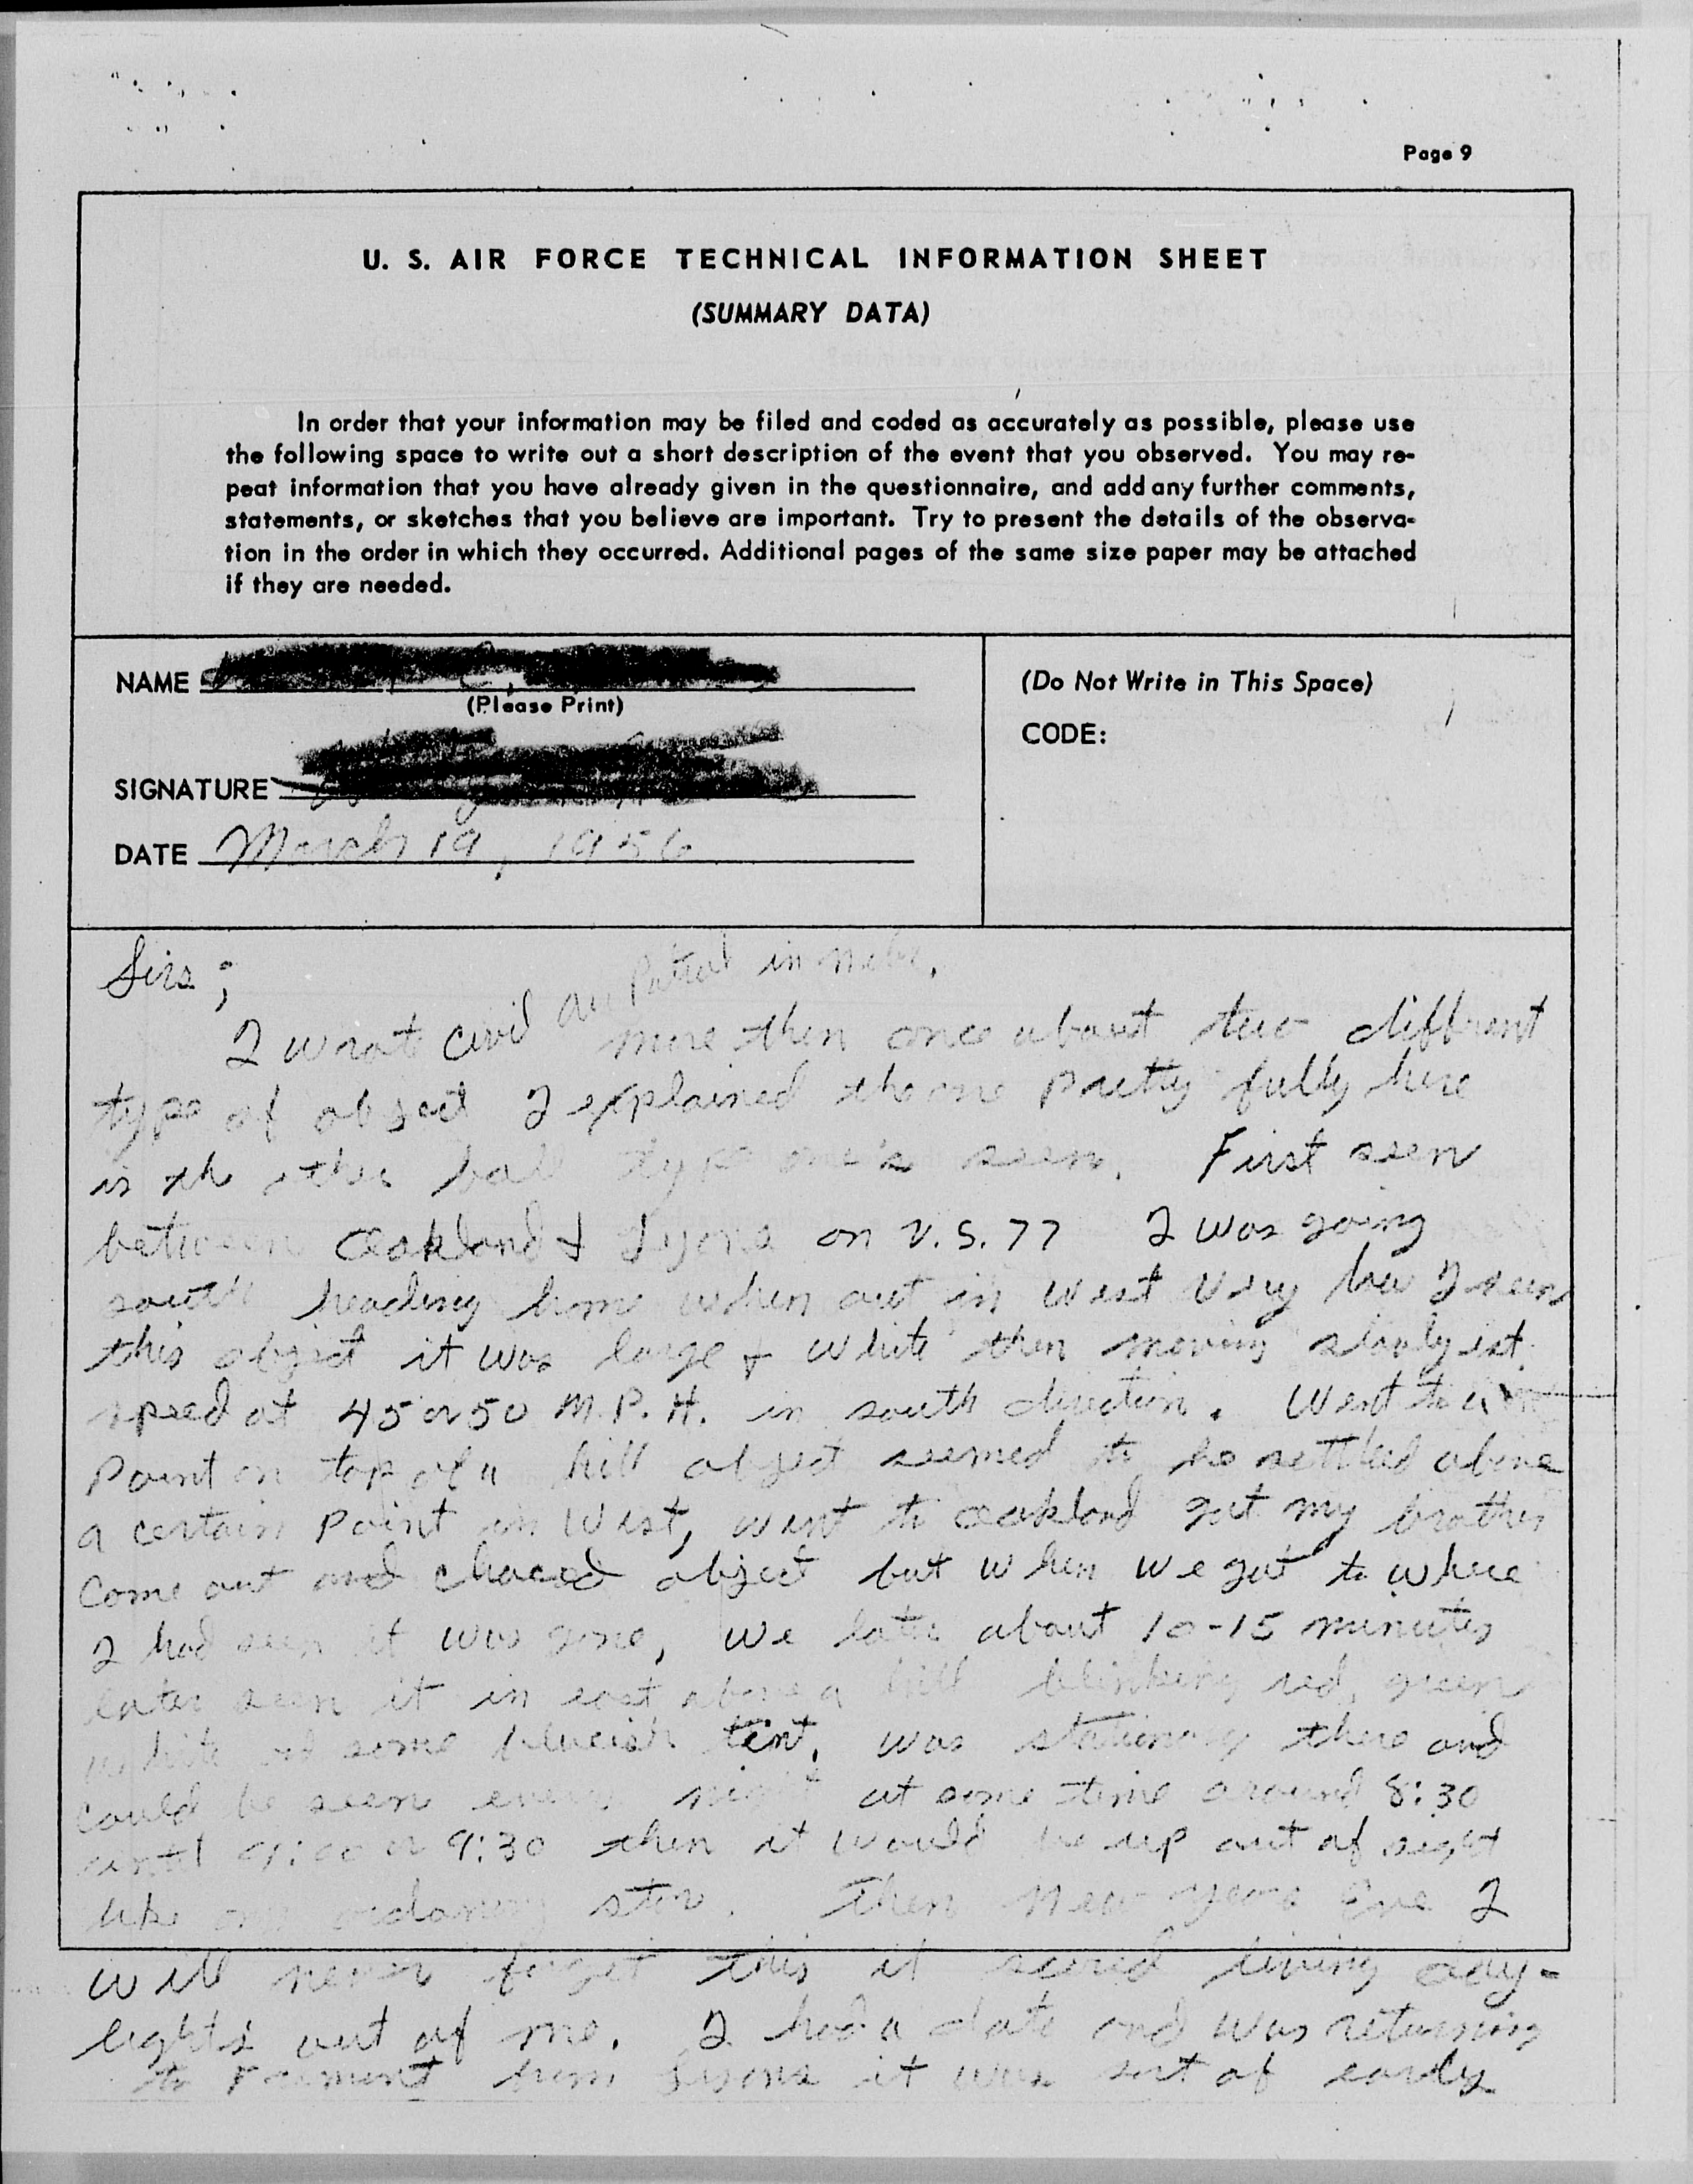 Page 9
U. S. AIR FORCE TECHNICAL INFORMATION SHEET
(SUMMARY DATA)
In order that your information may be filed and coded as accurately as possible, please use
the following space to write out a short description of the event that you observed. You may re-
peat information that you have already given in the questionnaire, and add any further comments,
statements, or sketches that you believe are important. Try to present the details of the observa-
tion in the order in which they occurred. Additional pages of the same size paper may be attached
if they are needed.
NAME
(Please Print)
SIGNATURE
DATE March 19, 1956
(Do Not Write in This Space)
CODE:
Sirs;
I wrot civil air Patrol in Nebr. more then once about two diffrent
type of object I explained the one Pretty fully here
is th other ball type one's seen. First seen
between Oakland & Lyons on U.S. 77 I was going
south heading home when out in West Very low I seen
this object it was large & White then moving slowly est.
speed at 45 or 50 M.P.H. in south direction. Went to
Point on top of a hill object seemed to be settled above
a certain Point in West, went to Oakland got my brother
Come out and chaced object but when we got to where
I had seen it was gone, we late about 10-15 minutes
later seen it in east above a hill blinking red, green
white of some blueish tint, was stationary there and
could be seen every night at some time around 8:30
until 9:00 or 9:30 then it would be up out of sight
like an ordanery star. Then New Years Eve I
will never forget this it scared living day-
lights out of me. I had a date and was returning
to Fremont from Lyons it was sort of early